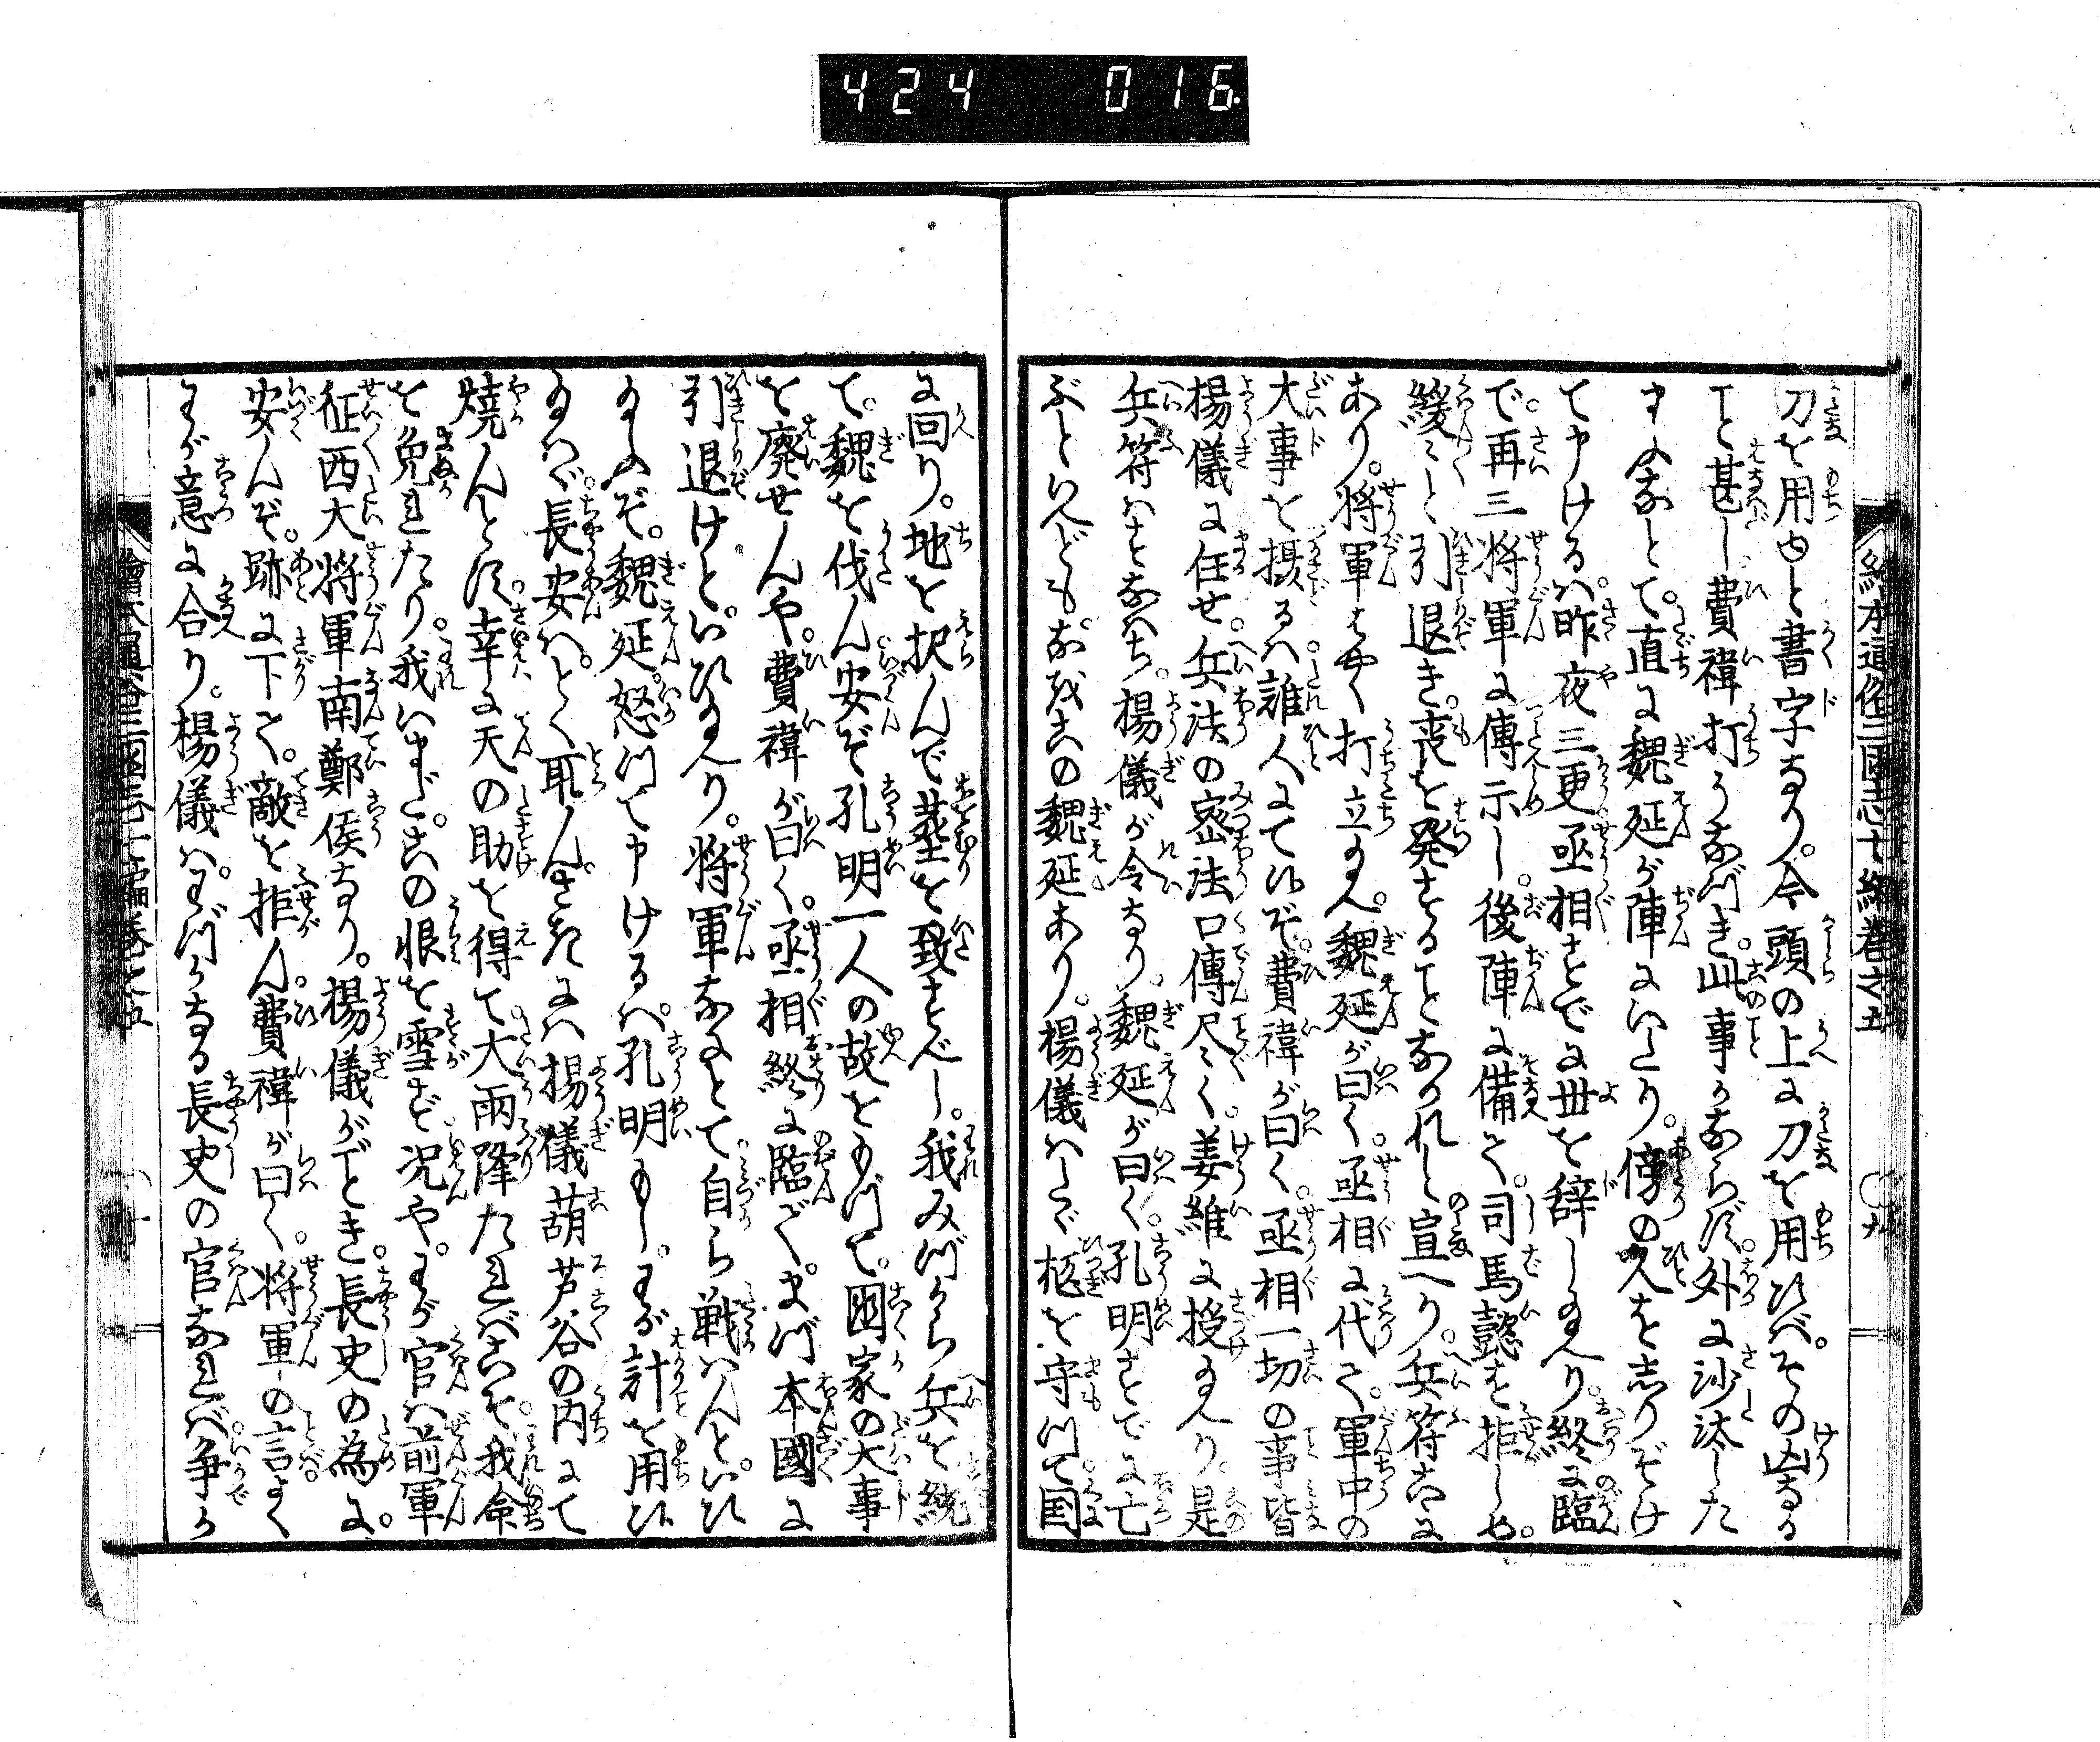 424 016
絵本通俗三国志七編巻之五 ○九
刀を用ゆと書字なり。今頭の上に刀を用ひべ。その凶なる
こと甚し費禕打うなづき。此事かならず。外に沙汰した
まふなとて。直に魏延が陣にいたり。傍の人をしりぞけ
て申けるハ。昨夜三更丞相すでに世を辞し給へり。終に臨
で。再三将軍に傳示し。後陣に備て。司馬懿を拒しめ。
緩々と引退き。喪を発することなかれと宣へり。兵符こゝに
あり。将軍はやく打立給へ。魏延が曰く。丞相に代て。軍中の
大事を摂るハ誰人にて候ぞ。費禕が曰く。丞相一切の事皆
楊儀に任せ。兵法の密法口傳尽く。姜維に授給へり。是
兵符ハすなハち。楊儀が令なり。魏延が曰く。孔明すでに亡
ぶといへども。なほ此の魏延あり。楊儀ハたゞ柩を守つて国
に回り。地を択んで葬を致すべし。我みづから兵を統
て。魏を伐ん安ぞ孔明一人の故をもつて。国家の大事
を廃せんや。費禕が曰く。丞相終に臨で。まづ本國に
引退けと。いひ給へり。将軍なにとて自ら戦ハんと。いひ
給ふぞ。魏延。怒つて申けるハ。孔明もし。わが計を用ひ
給ハゞ。長安ハ。とく取ん。さきにハ楊儀葫芦谷の内にて
焼んとす。幸に天の助を得て。大雨降たれべこそ。我命
を免れたり。我いまだ。此の恨を雪ず。況や。わが官ハ前軍
征西大将軍南鄭侯なり。楊儀がごとき。長史の為に。
安んぞ。跡に下て。敵を拒ん。費禕が曰く。将軍の言よく
わが意に合り。楊儀ハ。わづかなる長史の官なれバ。争か